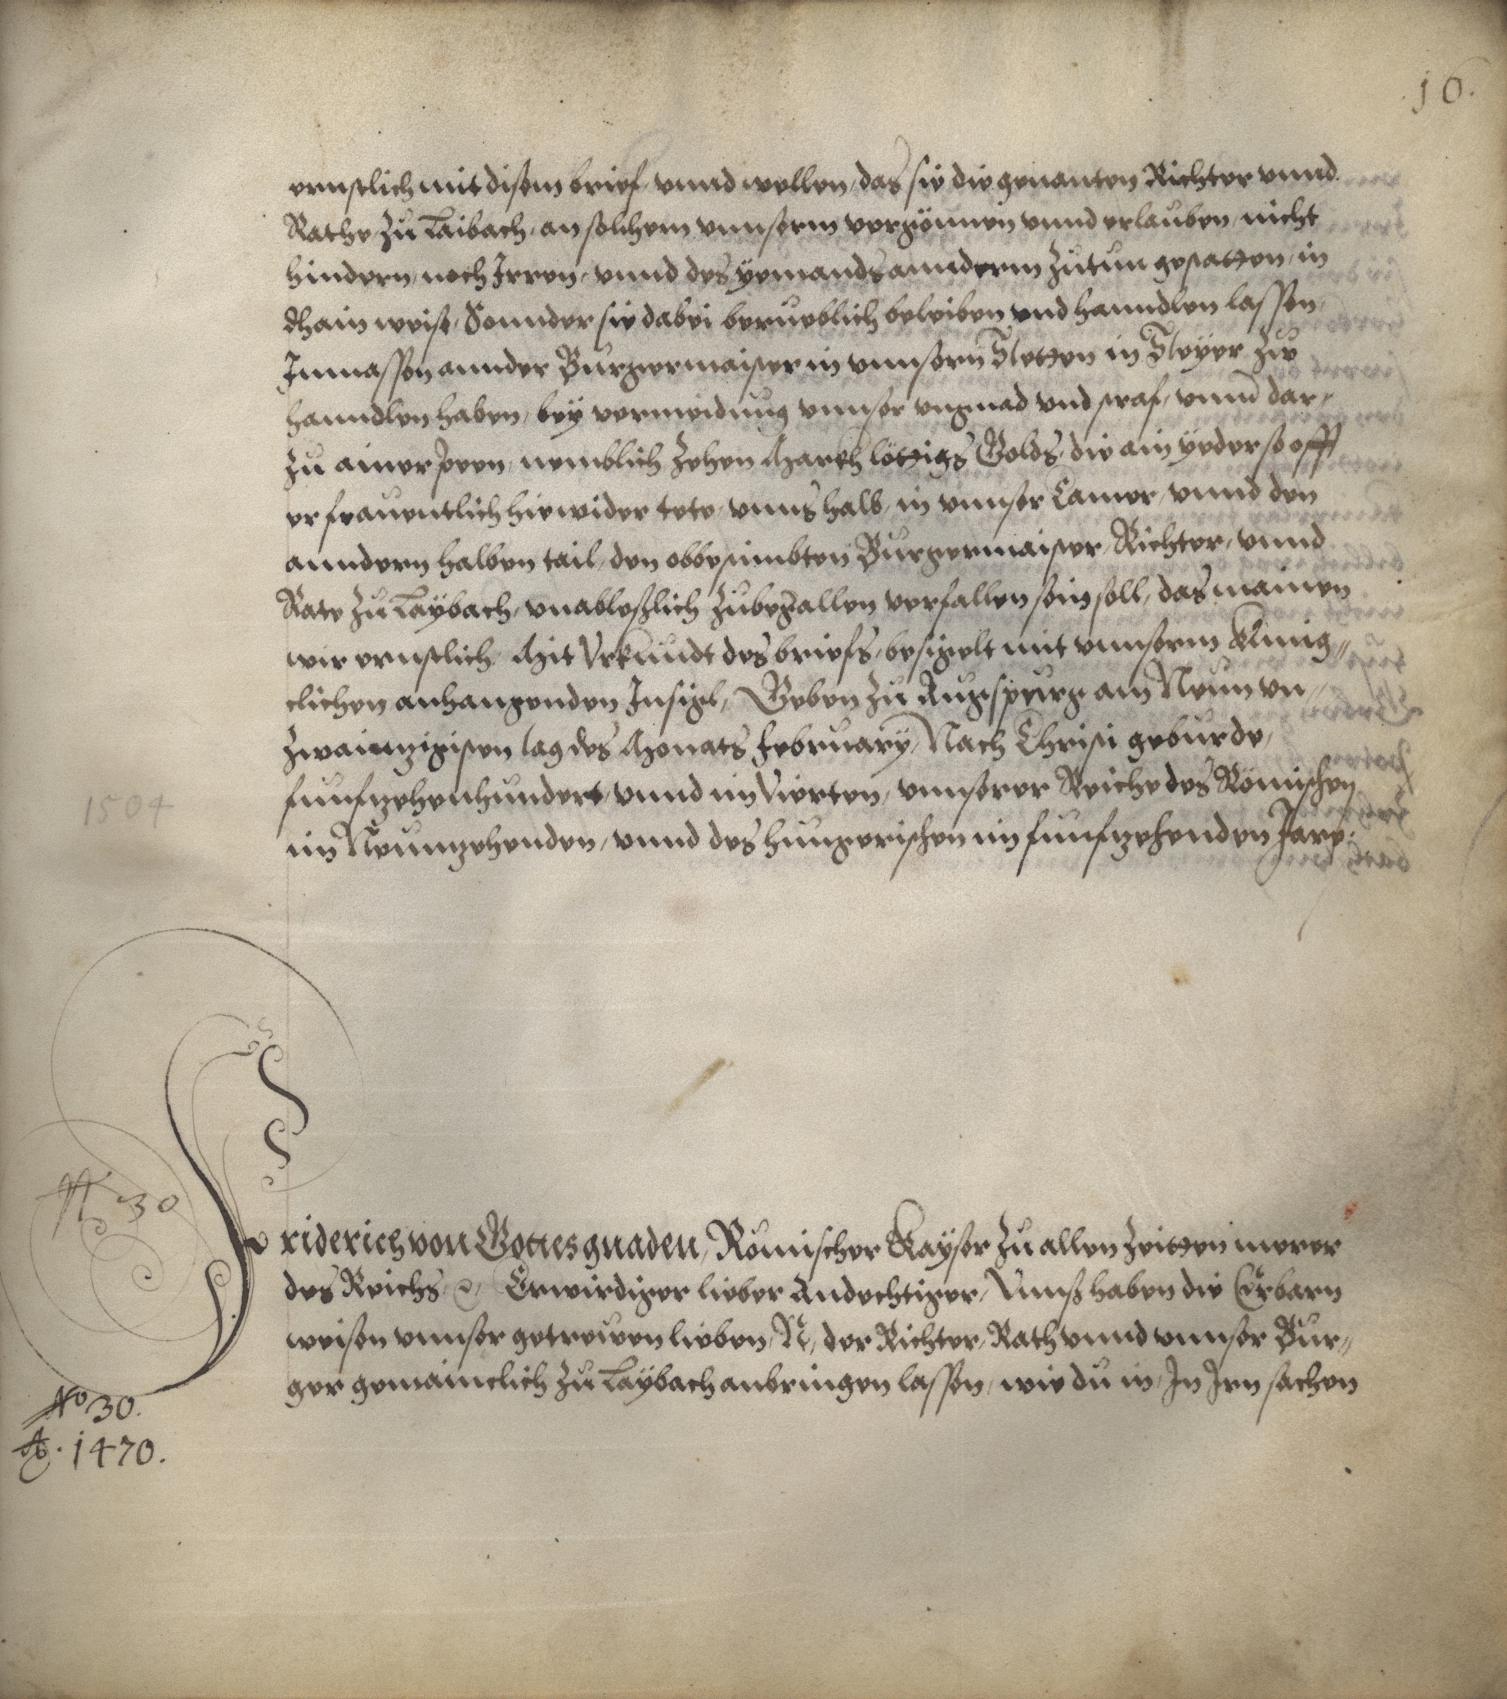 16.
ernstlich mit disem brief, vnnd wellen, das sie die genanten Richter vnnd
Rathe zu Laibach, an solchem vnnserm vergönnen vnnd erlauben, nicht
hindern, noch Irren, vnnd des yemands anndern zutun gestatten, in
dhain weise, Sonnder sie dabei berueblich beleiben vnd hanndlen lassen,
Inmassen annder Burgermaister in vnnsern Stetten in Steyer zu
hanndlen haben, bey vermeidung vnnser vngnad vnd straf, vnnd dar¬
zu ainer peen, nemblich zehen Markh löttigs Golds, die ain yeder so offt
er freuentlich hiewider tete, vnns halb, in vnnser Camer, vnnd den
anndern halben tail, den obbestimbten Burgermaister, Richter, vnnd
Rate zu Laybach, vnableßlich zubezallen verfallen sein soll, das mainen
wir ernstlich. Mit Vrkundt des briefs, besigelt mit vnnserm Künig„
clichen anhangenden Insigl, Geben zu Augspurg am Neun vn„
zwainzigisten tag des Monats February, Nach Christi geburde,
funfzehenhundert, vnnd im Vierten, vnnserer Reiche des Römischen
im Neunzehenden, vnnd des hungerischen im funfzehenden Jare.
1504
N 30
Friderich von Gottes gnaden, Römischer Kayser zu allen Zeitten merer
des Reichs ꝛc. Erwirdiger lieber Andechtiger, Vnnß haben die Erbarn
weisen vnnser getrewen lieben, N, der Richter, Rath vnnd vnnser Bur„
ger gemainclich zu Laybach anbringen lassen, wie du in, In Irn sachen
No 30.
Ao. 1470.